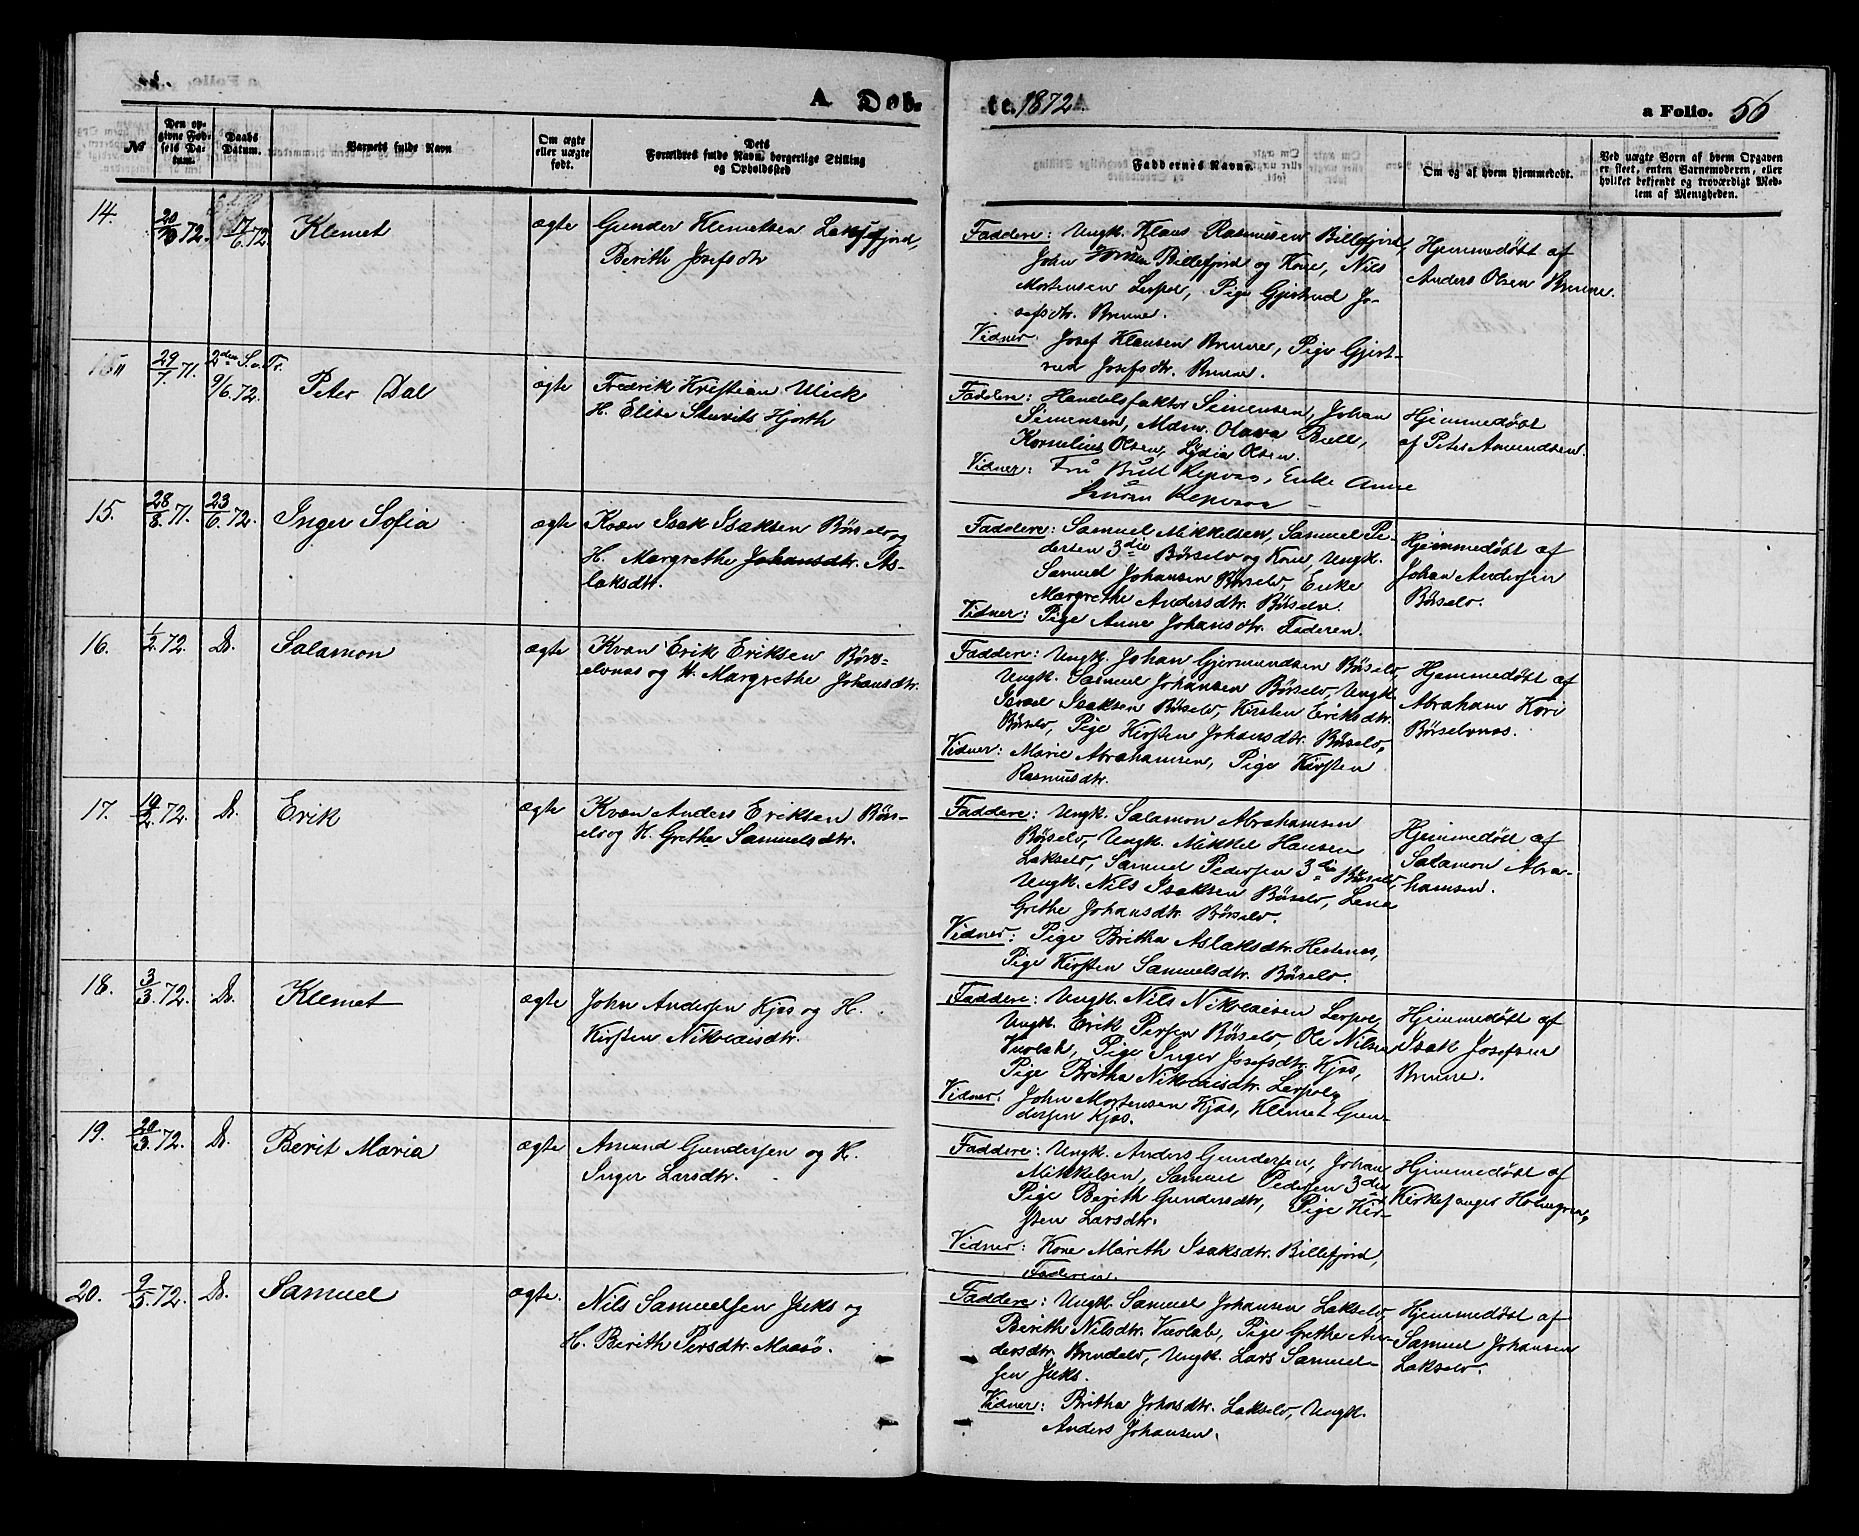 A Døb-
te. 1872.
a Folio. 56
No
Den op-
givne Fød-
sels Da-
tum.
Daabs
Datum.
Barnets fulde Navn
Om ægte
eller uægte
født.
Dets
Forældres fulde Navn, borgerlige Stilling
og Opholdssted
Faddernes Navne.
Om og af hvem hjemmedøbt.
Ved uægte Børn af hvem Opgaven
er skeet, enten Barnemoderen, eller
hvilket bekjendt og troværdigt Med-
lem af Menigheden.
14.
20/10 72.
17/6 72.
Klemet
ægte
Gunder Klemetsen Laksefjord,
Berith Josefsdtr
Faddere: Ungk. Klaus Rasmussen Billefjord,
John Billefjord og Kone, Nils
Mortensen Lerpol, Pige Gjertrud Jo-
sefsdtr. Brenne.
Vidner: Josef Klausen Brenne, Pige Gjert-
rud Josefsdtr. Brenne.
Hjemmedøbt af
Anders Olsen Brenne.
29/7. 71.
2den S. e. Tr.
9/6. 72.
Peter Dal
ægte
Fredrik Kristian Ulick
H. Elise Stuvits Hjorth
Faddere: Handelsfaktor Simensen, Johan
Simensen, Mdm. Olava Bull,
Kornelius Olsen, Lydia Olsen.
Vidner: Fru Bull Repvaag, Enke Anne
Hjemmedøbt
af Peter Amundsen.
15.
28/8. 71.
23/6. 72.
Inger Sofia
ægte
Kvæn Isak Isaksen Børselv og
H. Margrethe Johansdtr. As-
laksdtr.
Faddere: Samuel Mikkelsen, Samuel Pe-
dersen 3die Børselv og Kone, Ungk.
Samuel Johansen Børselv, Enke
Margrethe Andersdtr. Børselv.
Vidner: Pige Anne Johansdtr. Faderen.
Hjemmedøbt af
Johan Andersen
Børselv.
16.
1/2. 72.
D.
Salamon
ægte
Kvæn Erik Eriksen Børs-
elvnæs og H. Margrethe Johansdtr.
Faddere: Ungk. Johan Gjermundsen Børselv,
Ungk. Samuel Johansen Børselv, Ungk.
Israel Isaksen Børselv, Kirsten Eriksdtr.
Børselv, Pige Kirsten Johansdtr. Børselv.
Vidner: Marie Abrahamsen, Pige Kirsten
Rasmusdtr.
Hjemmedøbt af
Abraham Kari
Børselvnæs.
17.
19/2. 72.
D.
Erik
ægte
Kvæn Anders Eriksen Børs-
elv og H. Grethe Samuelsdtr.
Faddere: Ungk. Salamon Abrahamsen
Børselv, Ungk. Mikkel Hansen
Lakselv, Samuel Pedersen 3die Børselv,
Ungk. Nils Isaksen Børselv, Lena
Grethe Johansdtr. Børselv.
Vidner: Pige Britha Aslaksdtr. Hestenæs,
Pige Kirsten Samuelsdtr. Børselv.
Hjemmedøbt af
Salamon Abra-
hamsen.
18.
3/3. 72.
D.
Klemet
ægte
John Andersen Kjæs og H.
Kirsten Nikolaisdtr.
Faddere: Ungk. Nils Nikolaisen Lerpol,
Ungk. Erik Persen Børselv, Ole Nilsen
Vuolab, Pige Inger Josefsdtr. Kjæs,
Pige Britha Nikolaisdtr. Lerpol.
Vidner: John Mortensen Kjæs, Klemet Gun-
dersen Kjæs.
Hjemmedøbt af
Isak Josefsen
Brenne.
19.
20/3. 72.
D.
Berit Maria
ægte
Amund Gundersen og H.
Inger Larsdtr.
Faddere: Ungk. Anders Gundersen, Johan
Mikkelsen, Samuel Pedersen 3die
Pige Berith Gundersdtr, Pige Kir-
sten Larsdtr.
Vidner: Kone Marith Isaksdtr. Billefjord,
Faderen.
Hjemmedøbt af
Kirkesanger Holmgren.
20.
9/5. 72.
D.
Samuel
ægte.
Nils Samuelsen Juks og
H. Berith Persdtr. Maasø.
Faddere: Ungk. Samuel Johansen Lakselv,
Berith Nilsdtr. Vuolab, Pige Grethe An-
dersdtr. Brendelv, Ungk. Lars Samuel-
sen Juks.
Vidner: Britha Johsdtr. Lakselv, Ungk.
Anders Johansen.
Hjemmedøbt af
Samuel Johansen
Lakselv.